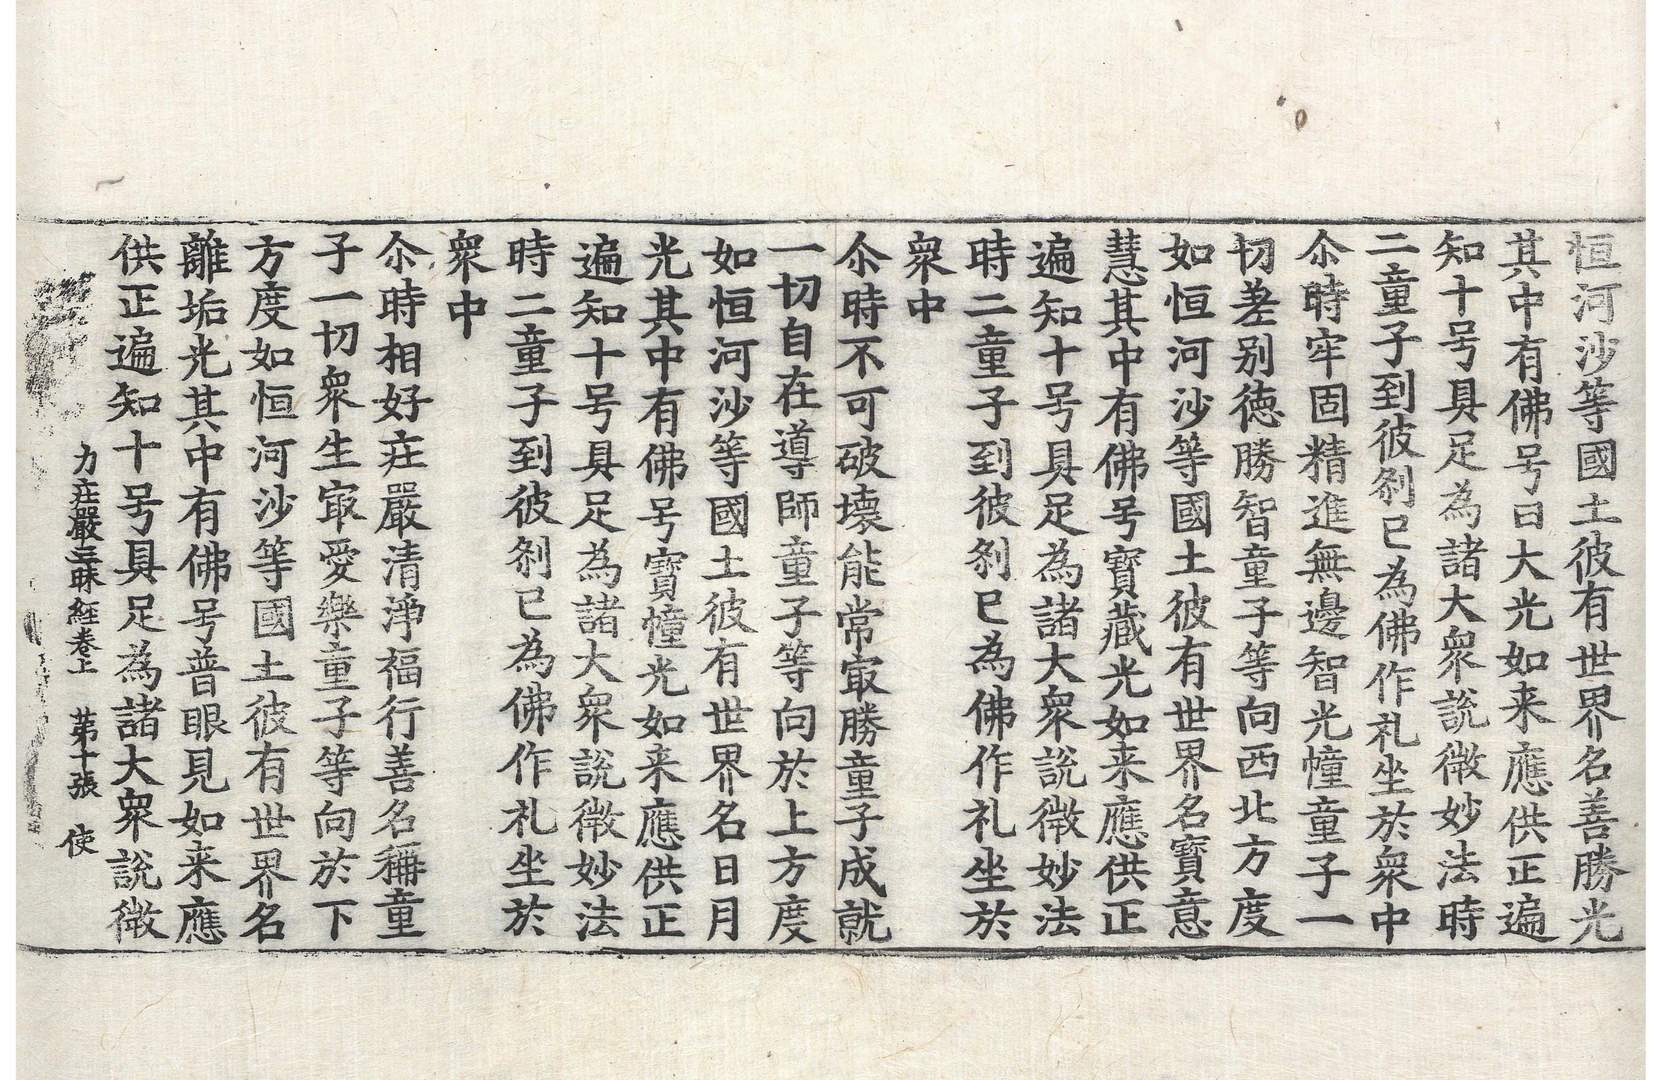 恒河沙等國土彼有世界名善勝光
其中有佛号曰大光如来應供正遍
知十号具足為諸大衆說微妙法時
二童子到彼刹已為佛作礼坐於衆中
尒時牢固精進無邊智光幢童子一
切差別徳勝智童子等向西北方度
如恒河沙等國土彼有世界名寶意
慧其中有佛号寶藏光如来應供正
遍知十号具足為諸大衆說微妙法
時二童子到彼刹已為佛作礼坐於
衆中
尒時不可破壞能常㝡勝童子成就
一切自在導師童子等向於上方度
如恒河沙等國土彼有世界名日月
光其中有佛号寶幢光如来應供正
遍知十号具足為諸大衆說微妙法
時二童子到彼刹已為佛作礼坐於
衆中
尒時相好庄嚴清淨福行善名稱童
子一切衆生㝡愛樂童子等向於下
方度如恒河沙等國土彼有世界名
離垢光其中有佛号普眼見如来應
供正遍知十号具足為諸大衆說微
力庄嚴三昧経卷上 第十張 使